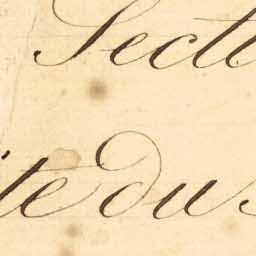 Secti
ite du